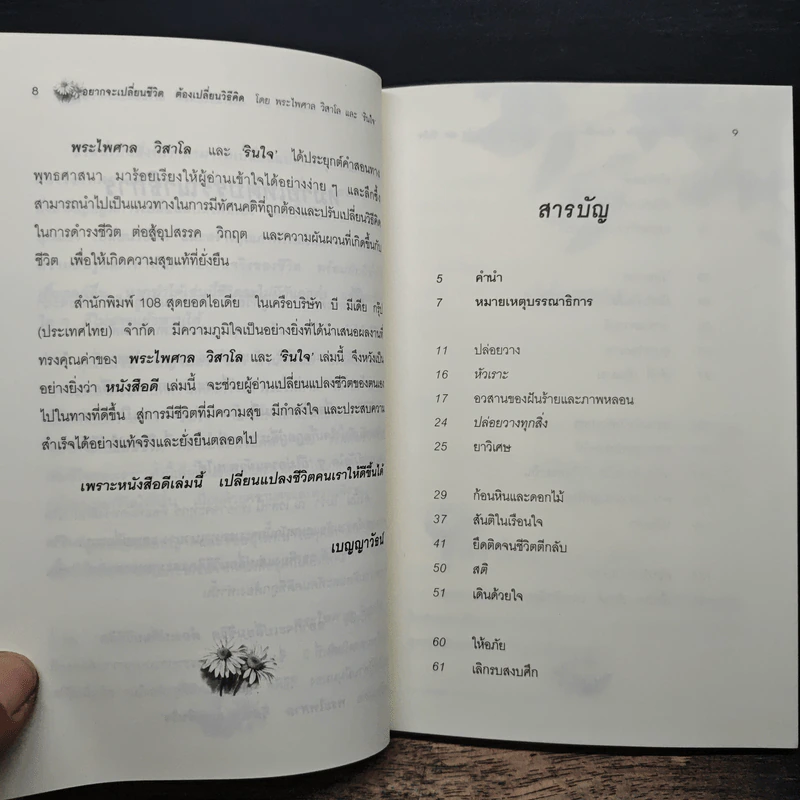 8 อยากจะเปลี่ยนชีวิต ต้องเปลี่ยนวิธีคิด โดย พระไพศาล วิสาโล และ 'รินใจ'
พระไพศาล วิสาโล และ 'รินใจ' ได้ประยุกต์คำสอนทาง
พุทธศาสนา มาร้อยเรียงให้ผู้อ่านเข้าใจได้อย่างง่าย ๆ และลึกซึ้ง
สามารถนำไปเป็นแนวทางในการมีทัศนคติที่ถูกต้องและปรับเปลี่ยนวิธีคิด
ในการดำรงชีวิต ต่อสู้อุปสรรค วิกฤต และความผันผวนที่เกิดขึ้นกับ
ชีวิต เพื่อให้เกิดความสุขแท้ที่ยั่งยืน
สำนักพิมพ์ 108 สุดยอดไอเดีย ในเครือบริษัท บี มีเดีย กรุ๊ป
(ประเทศไทย) จำกัด มีความภูมิใจเป็นอย่างยิ่งที่ได้นำเสนอผลงานที่
ทรงคุณค่าของ พระไพศาล วิสาโล และ 'รินใจ' เล่มนี้ จึงหวังเป็น
อย่างยิ่งว่า หนังสือดี เล่มนี้ จะช่วยผู้อ่านเปลี่ยนแปลงชีวิตของตนเอง
ไปในทางที่ดีขึ้น สู่การมีชีวิตที่มีความสุข มีกำลังใจ และประสบความ
สำเร็จได้อย่างแท้จริงและยั่งยืนตลอดไป
เพราะหนังสือดีเล่มนี้ เปลี่ยนแปลงชีวิตคนเราให้ดีขึ้นได้
เบญญาวัธน์
๑
สารบัญ
5 คำนำ
7 หมายเหตุบรรณาธิการ
11 ปล่อยวาง
16 หัวเราะ
17 อวสานของฝันร้ายและภาพหลอน
24 ปล่อยวางทุกสิ่ง
25 ยาวิเศษ
29 ก้อนหินและดอกไม้
37 สันติในเรือนใจ
41 ยึดติดจนชีวิตตีกลับ
50 สติ
51 เดินด้วยใจ
60 ให้อภัย
61 เลิกรบสงบศึก